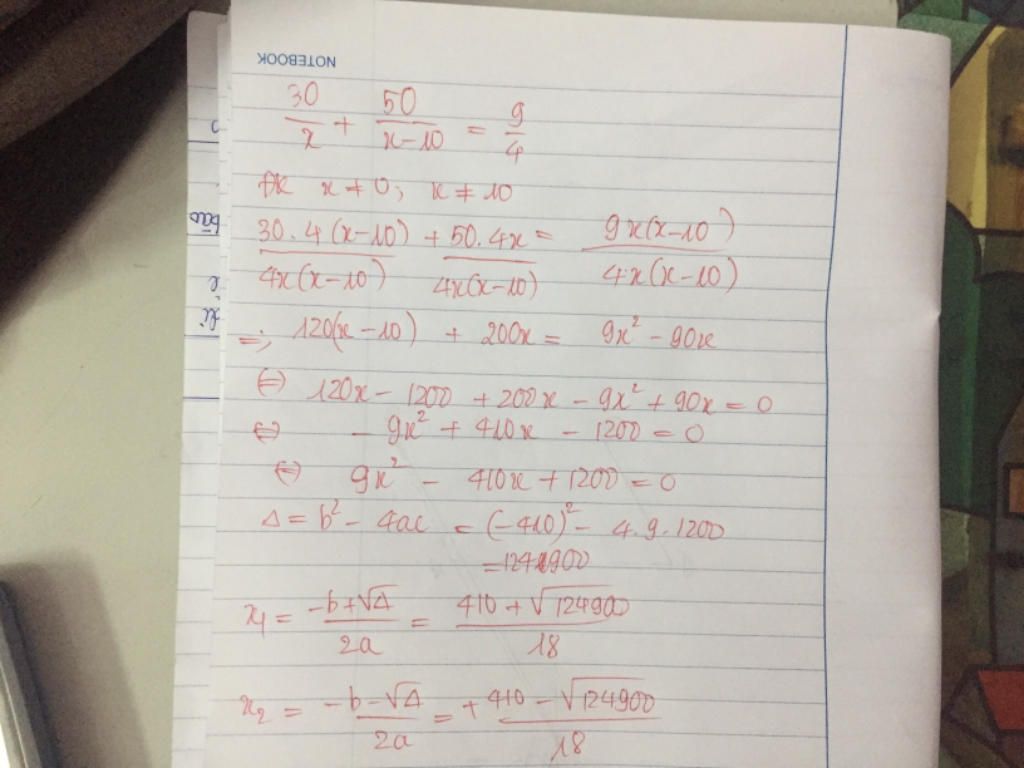 NOTEBOOK
30/x + 50/(x-10) = 9/4
ĐK x ≠ 0; x ≠ 10
30.4(x-10)/4x(x-10) + 50.4x/4x(x-10) = 9x(x-10)/4x(x-10)
=> 120(x-10) + 200x = 9x² - 90x
⇔ 120x - 1200 + 200x - 9x² + 90x = 0
⇔ -9x² + 410x - 1200 = 0
⇔ 9x² - 410x + 1200 = 0
Δ = b² - 4ac = (-410)² - 4.9.1200
= 124900
x₁ = (-b+√Δ)/2a = (410 + √124900)/18
x₂ = (-b-√Δ)/2a = + (410 - √124900)/18